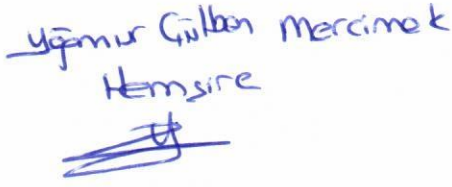 Yağmur Gülben Mercimek
Hemşire